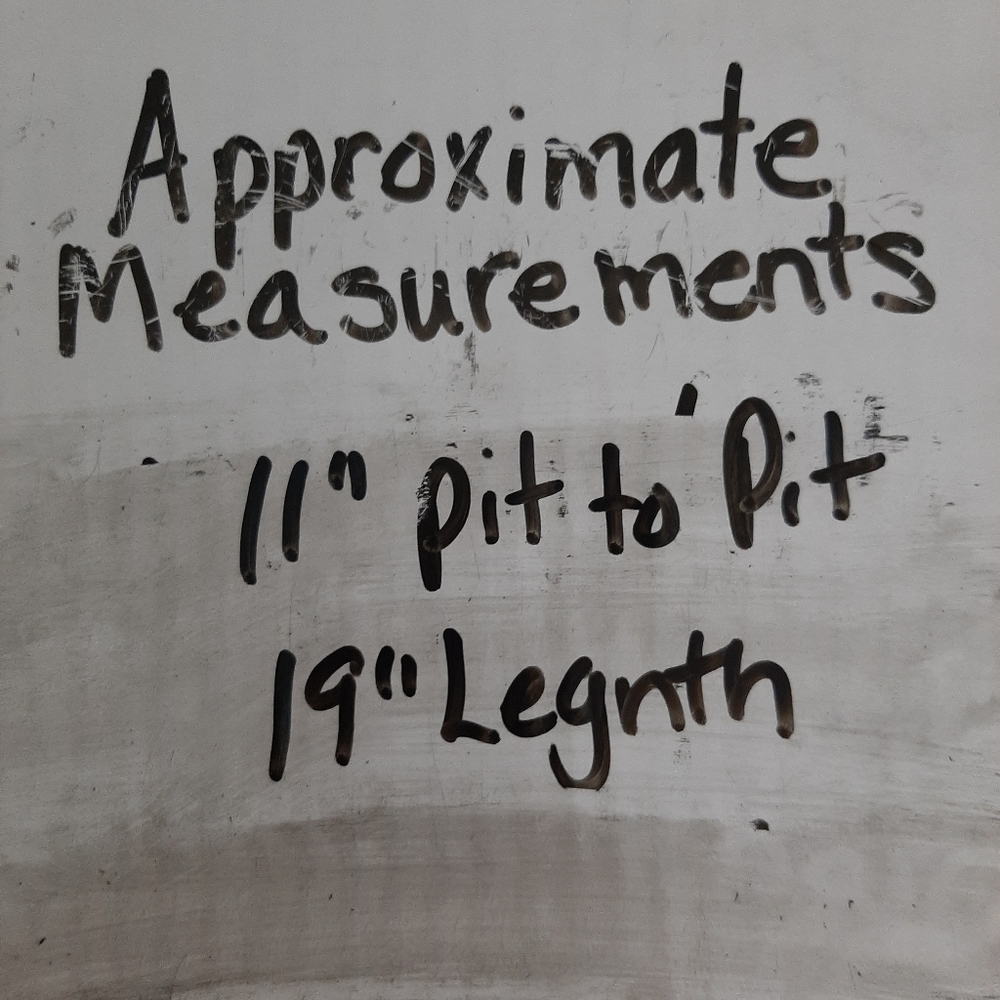 Approximate
Measurements
11" pit to Pit
19" Legnth